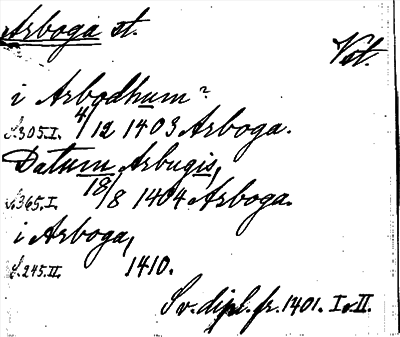 Arboga st.
Vstl.
i Arbodhum?
S.305.I. 4/12 1403 Arboga.
Datum Arbugis,
S.365.I. 18/8 1404 Arboga.
i Arboga,
S.245.II. 1410.
Sv. dipl. fr. 1401. I o. II.